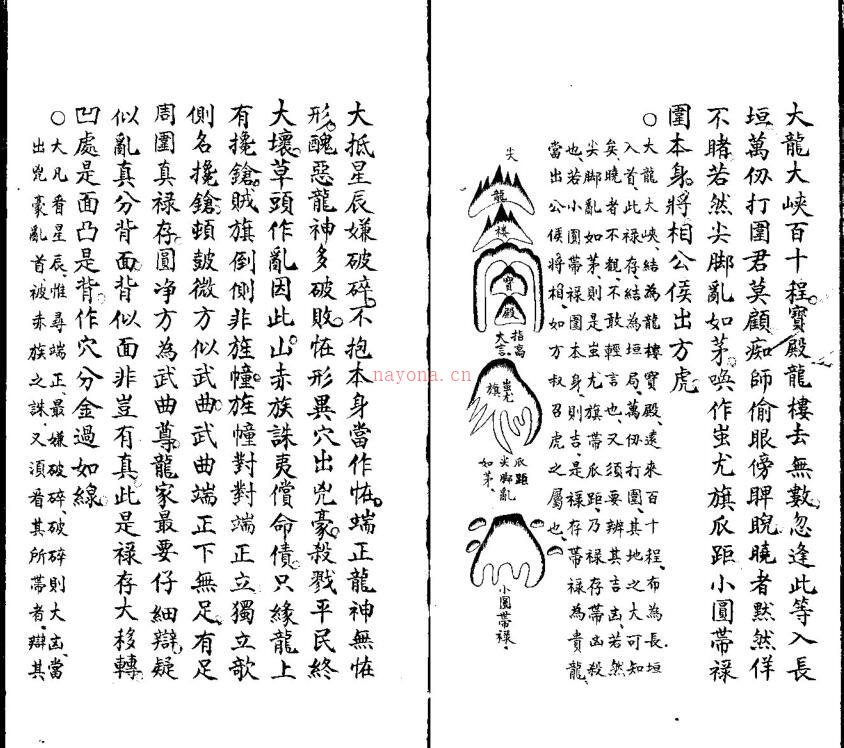 大龍大峽百十程寶殿龍樓去無數忽逢此等入長
垣萬仞打圍君莫顧痴師偷眼傍睥睨曉者黙然佯
不睹若然尖脚亂如茅喚作蚩尤旗爪距小圓帯祿
圍本身將相公侯出方虎
○大龍大峽結為龍樓寶殿遠來百十程布為長垣
入首此祿存結為垣局萬仞打圍其地之大可知
矣曉者不覩不敢輕言也又須要辨其吉凶若然
尖脚亂如茅則是蚩尤旗帯爪距乃祿存帯凶殺
也若小圓帯祿圍本身則吉是祿存帯祿為貴龍
當出公侯將相如方叔召虎之屬也
尖
龍
樓
寶
殿
指高
大言
蚩尤
旗
爪距
尖脚亂
如茅
小圓帯祿
大抵星辰嫌破碎不抱本身當作怪端正龍神無怪
形醜惡龍神多破敗怪形異穴出兇豪殺戮平民終
大壞草頭作亂因此山赤族誅夷償命債只緣龍上
有攙鎗賊旗倒側非旌幢旌幢對對端正立獨立欹
側名攙鎗頓皷微方似武曲武曲端正下無足有足
周圍真祿存圓净方為武曲尊龍家最要仔細辯疑
似亂真分背面背似面非豈有真此是祿存大移轉
凹處是面凸是背作穴分金過如線
○大凡看星辰惟尋端正最嫌破碎破碎則大凶當
出兇豪亂首被赤族之誅又須看其所帯者辯其
nayona.cn